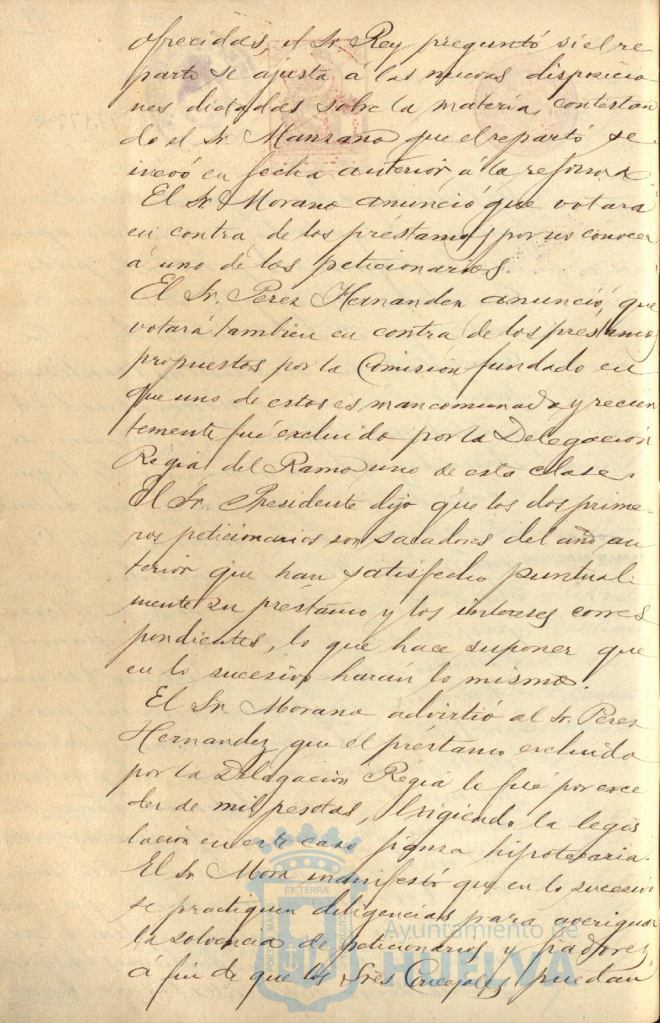 ofrecidas, el Sr. Rey preguntó si el re
parto se ajusta á las nuevas disposicio
nes dictadas sobre la materia, contestan
do el Sr. Manzano que el repartó se
incoó en fecha anterior á la reforma
El Sr. Morano anunció que votara
en contra de los préstamos por no conocer
á uno de los peticionarios.
El Sr. Perez Hernandez anunció, que
votará tambien en contra de los prestamos
propuestos por la Comisión fundado en
que uno de estos es mancomunado y recien
temente fué excluido por la Delegación
Regia del Ramo uno de esta clase.
El Sr. Presidente dijo que los dos prime-
ros peticionarios son sacadores del año an
terior que han satisfecho puntual-
mente su préstamo y los intereses corres
pondientes, lo que hace suponer que
en lo sucesivo harán lo mismo.
El Sr. Morano advirtió al Sr. Perez
Hernandez que el préstamo excluido
por la Delegación Regia le fué por exce
der de mil pesetas, exigiendo la legis
lación en este caso fianza hipotecaria.
El Sr. Mora manifestó que en lo sucesivo
se practiquen diligencias para averiguar
la solvencia de peticionarios y fiadores,
á fin de que los Sres. Concejales puedan
Ayuntamiento de
HUELVA